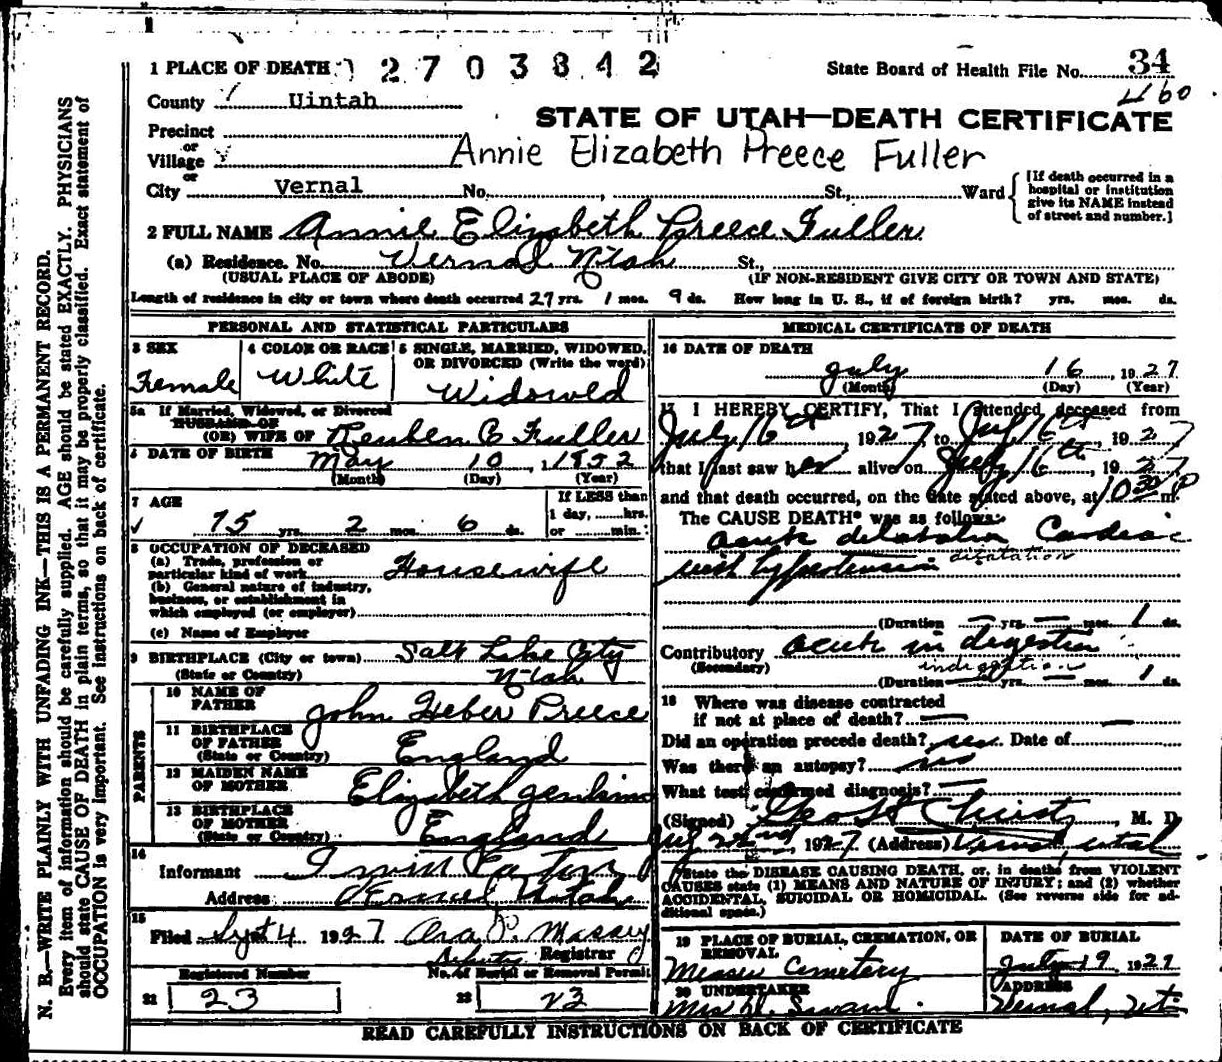 1 PLACE OF DEATH 2703842 State Board of Health File No. 34
460
County Uintah
STATE OF UTAH—DEATH CERTIFICATE
Precinct
or
Village
Annie Elizabeth Preece Fuller
or
City Vernal No. St., Ward
[If death occurred in a hospital or institution give its NAME instead of street and number.]
2 FULL NAME Annie Elizabeth Preece Fuller
(a) Residence. No. Vernal Utah St.,
(USUAL PLACE OF ABODE) (IF NON-RESIDENT GIVE CITY OR TOWN AND STATE)
Length of residence in city or town where death occurred 27 yrs. 1 mos. 9 ds. How long in U. S., if of foreign birth? yrs. mos. ds.
PERSONAL AND STATISTICAL PARTICULARS
3 SEX
Female
4 COLOR OR RACE
White
5 SINGLE, MARRIED, WIDOWED, OR DIVORCED (Write the word)
Widowed
5a If Married, Widowed, or Divorced
HUSBAND OF
(OR) WIFE OF Reuben C Fuller
6 DATE OF BIRTH May 10, 1852
(Month) (Day) (Year)
7 AGE
75 yrs. 2 mos. 6 ds.
If LESS than 1 day, ......hrs. or ......min.
8 OCCUPATION OF DECEASED
(a) Trade, profession or particular kind of work Housewife
(b) General nature of industry, business, or establishment in which employed (or employer)
(c) Name of Employer
9 BIRTHPLACE (City or town) Salt Lake City
(State or Country) Utah
PARENTS
10 NAME OF FATHER John Heber Preece
11 BIRTHPLACE OF FATHER (State or Country) England
12 MAIDEN NAME OF MOTHER Elizabeth
13 BIRTHPLACE OF MOTHER (State or Country) England
14
Informant
Address Utah
15
Filed Sept 4 1927 Ora P. Massey
Registrar
Registered Number No. of Burial or Removal Permit
21 23 22 23
MEDICAL CERTIFICATE OF DEATH
16 DATE OF DEATH
July 16, 1927
(Month) (Day) (Year)
I HEREBY CERTIFY, That I attended deceased from
July 16th, 1927, to July 16th, 1927
that I last saw her alive on July 16th, 1927
and that death occurred, on the date stated above, at 10 30 P m.
The CAUSE DEATH* was as follows:
acute dilatation Cardiac
dilatation
with hypertension
(Duration — yrs. — mos. 1 ds.
Contributory acute in digestion
(Secondary) indigestion
(Duration — yrs. — mos. 1 ds.
18 Where was disease contracted
if not at place of death? —
Did an operation precede death? no Date of
Was there an autopsy? no
What test confirmed diagnosis? —
(Signed) , M. D.
July 22nd, 1927. (Address) Vernal, Utah
*State the DISEASE CAUSING DEATH, or, in deaths from VIOLENT CAUSES state (1) MEANS AND NATURE OF INJURY; and (2) whether ACCIDENTAL, SUICIDAL OR HOMICIDAL. (See reverse side for additional space.)
19 PLACE OF BURIAL, CREMATION, OR REMOVAL
Cemetery
DATE OF BURIAL
July 19 1927
20 UNDERTAKER
ADDRESS
Vernal, Ut.
READ CAREFULLY INSTRUCTIONS ON BACK OF CERTIFICATE
N. B.—WRITE PLAINLY WITH UNFADING INK—THIS IS A PERMANENT RECORD.
Every item of information should be carefully supplied. AGE should be stated EXACTLY. PHYSICIANS
should state CAUSE OF DEATH in plain terms, so that it may be properly classified. Exact statement of
OCCUPATION is very important. See instructions on back of certificate.